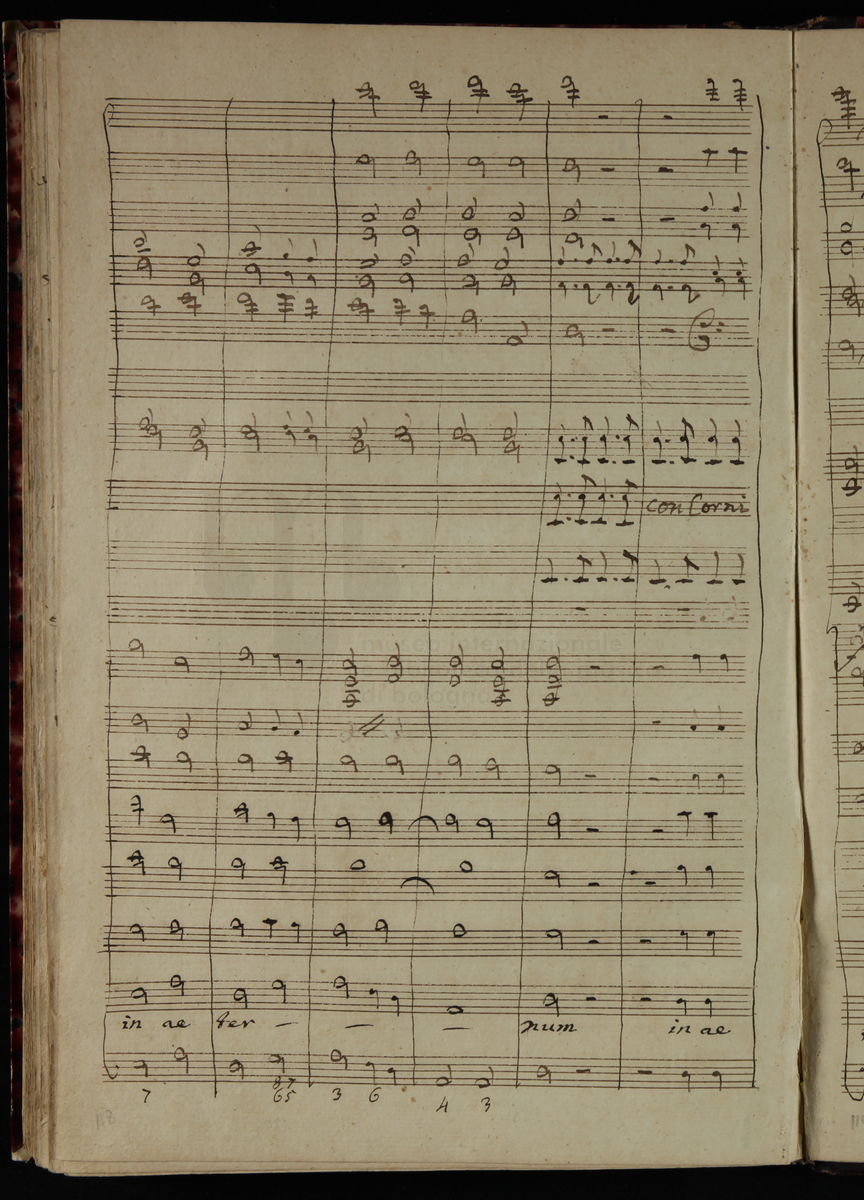 con Corni
museo internazionale
di bologna
in ae ter — — — num in ae
7 8 7
6 5 3 6 4 3
118